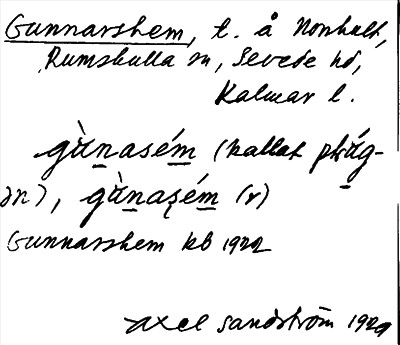 Gunnarshem, t. å Norrhult,
Rumskulla sn, Sevede hd,
Kalmar l.
gùnasém (kallat
ən), gùnaşém (r)
Gunnarshem kb 1922
Axel Sandström 1929